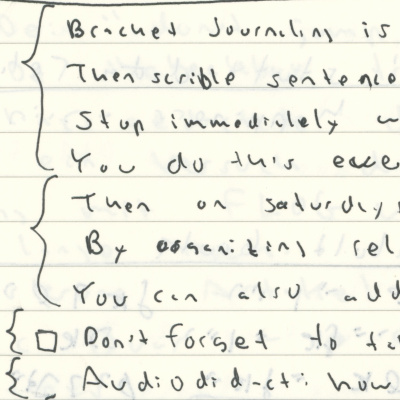 Bracket Journaling is
Then scrible sentence
Stop immediately
You do this
Then on saturdays
By organizing rel
You can also add
Don't forget to ta
Audiodidact: how